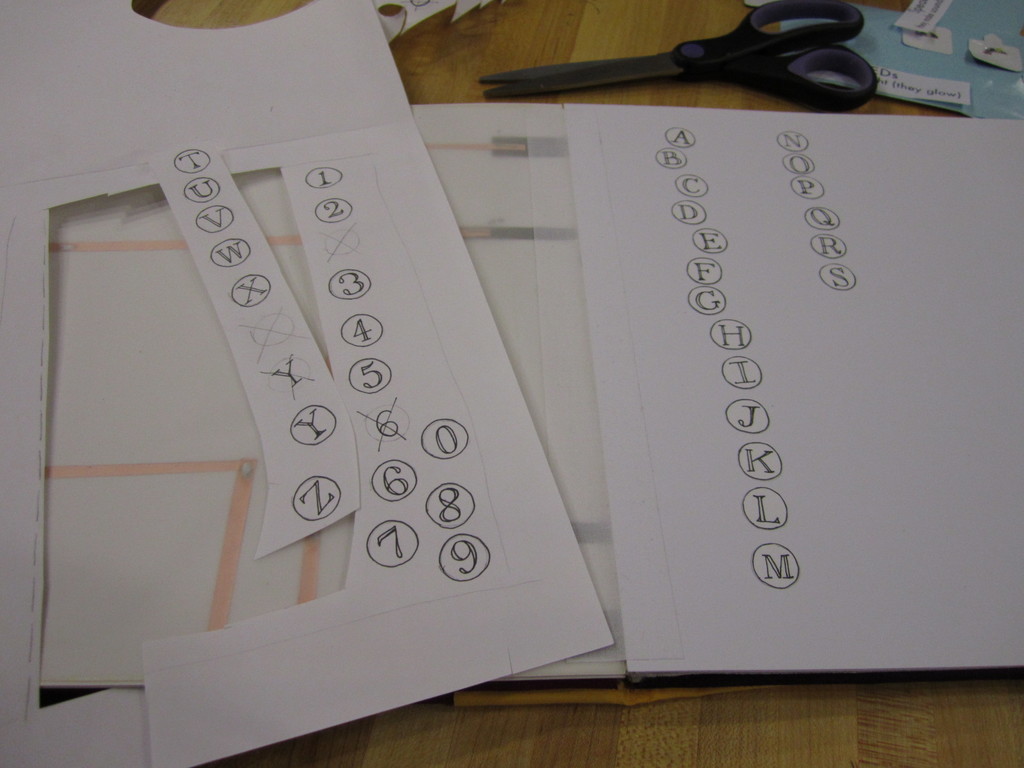 T
U
V
W
X
Y
Y
Z
1
2
3
4
5
6
6
7
0
8
9
A
B
C
D
E
F
G
H
I
J
K
L
M
N
O
P
Q
R
S
(they glow)